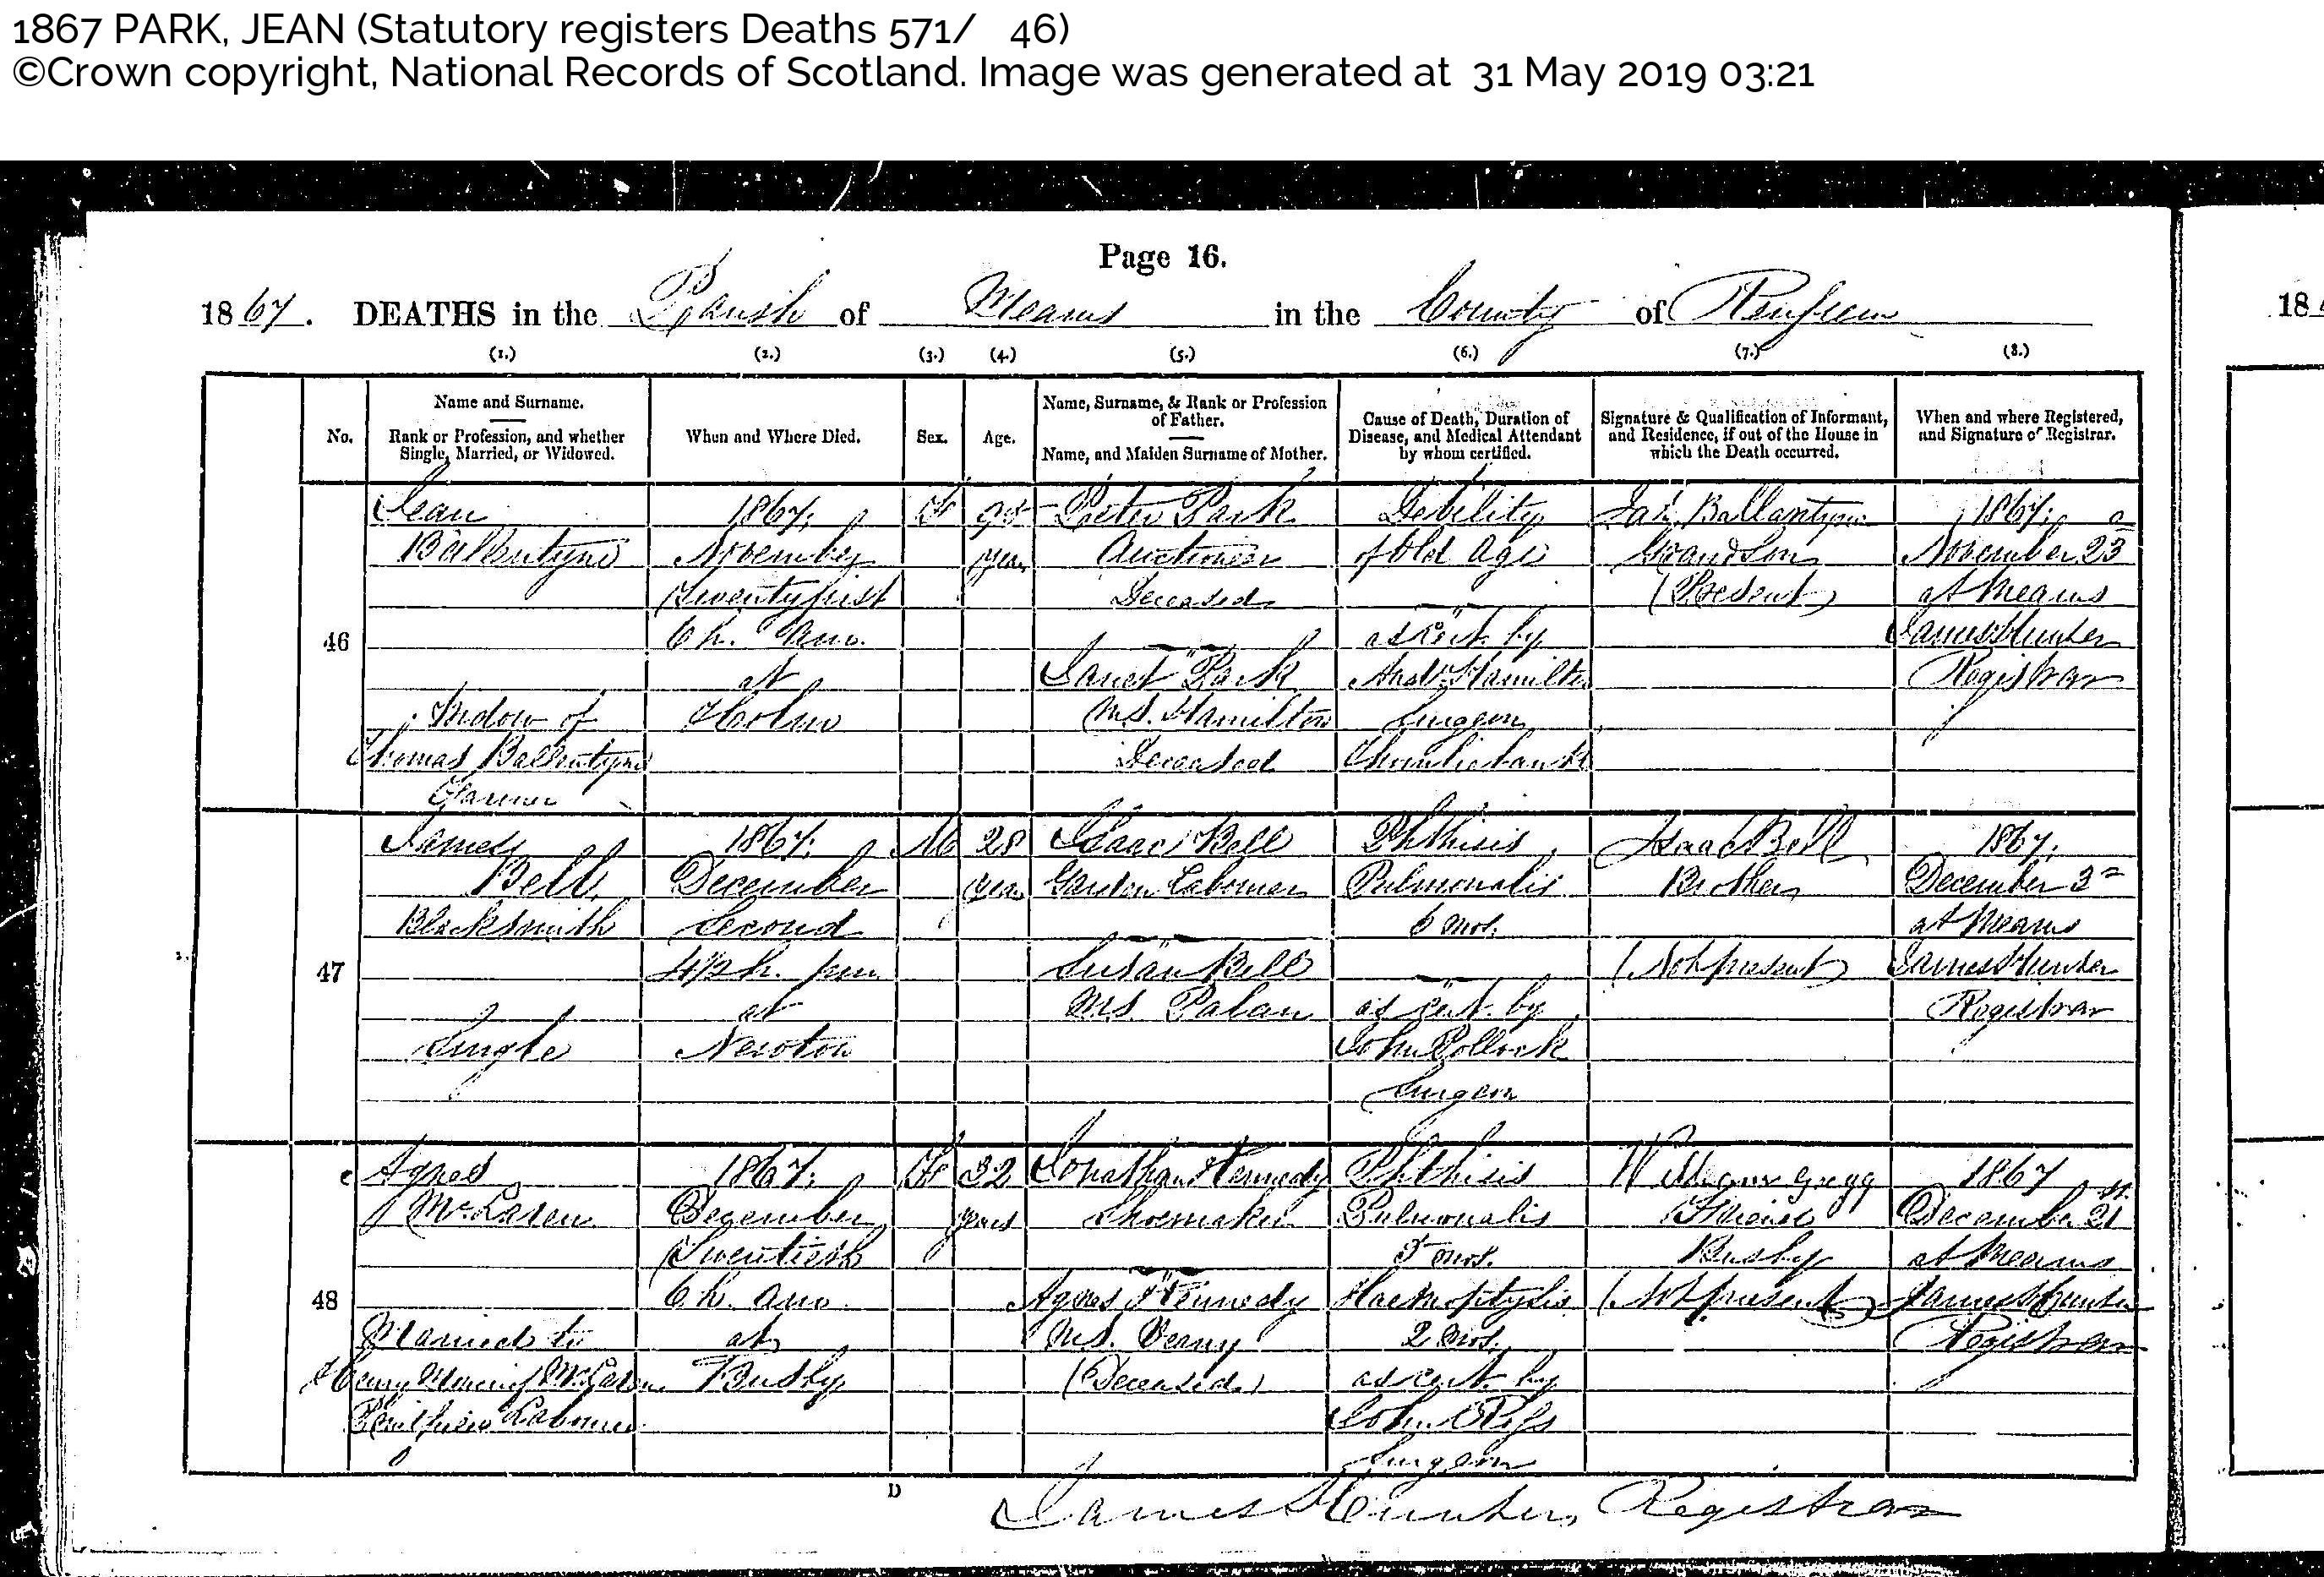 1867 PARK, JEAN (Statutory registers Deaths 571/ 46)
©Crown copyright, National Records of Scotland. Image was generated at 31 May 2019 03:21
Page 16.
1867. DEATHS in the Parish of Mearns in the County of Renfrew
18
(1.) (2.) (3.) (4.) (5.) (6.) (7.) (8.)
No.
Name and Surname.
Rank or Profession, and whether
Single, Married, or Widowed.
When and Where Died.
Sex.
Age.
Name, Surname, & Rank or Profession
of Father.
Name, and Maiden Surname of Mother.
Cause of Death, Duration of
Disease, and Medical Attendant
by whom certified.
Signature & Qualification of Informant,
and Residence, if out of the House in
which the Death occurred.
When and where Registered,
and Signature of Registrar.
46
Jean
Ballentyne
Widow of
Thomas Ballentyne
Farmer
1867.
November
Twenty first
6 h. am.
at
F
years
Peter Park
Auctioneer
Deceased
Janet Park
M.S. Hamilton
Deceased
Debility
of Old Age
as cert. by
Andw. Hamilton
Surgeon
Ballantyne
Grandson
(Present)
1867.
November 23
at Mearns
James Hunter
Registrar
47
James
Bell
Blacksmith
Single
1867.
December
Second
4½ h. pm.
at
Newton
M
28
years
Isaac Bell
Garden Labourer
Susan Bell
M.S.
Phthisis
Pulmonalis
6 mos.
as cert. by
John Pollock
Surgeon
Isaac Bell
Brother
(Not present)
1867.
December 3
at Mearns
James Hunter
Registrar
48
Agnes
McLaren
Married to
Henry McLaren
Labourer
1867.
December
Twentieth
6 h. am.
at
Busby
F
32
years
Jonathan Kennedy
Shoemaker
Agnes Kennedy
M.S.
(Deceased)
Phthisis
Pulmonalis
5 mos.
Haemoptysis
2 mos.
as cert. by
John Ross
Surgeon
William Gregg
Friend
Busby
(Not present)
1867
December 21
at Mearns
James Hunter
Registrar
D
James Hunter, Registrar